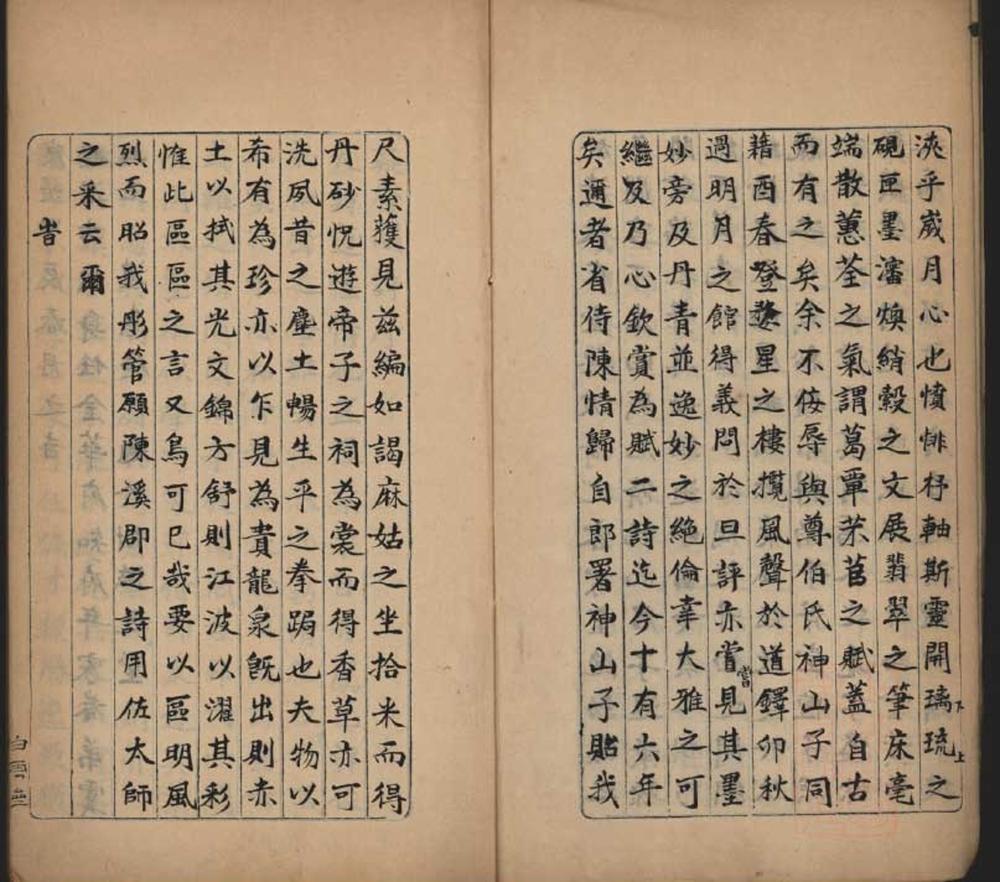 浹乎崴月心也憤悱杼軸斯靈開璃琉之
硯匣墨瀋煥綃縠之文展翡翠之筆床毫
端散蕙荃之氣謂葛覃苤苢之賦蓋自古
而有之矣余不佞辱與尊伯氏神山子同
藉酉春登婺星之樓攬風聲於道鐸卯秋
過明月之館得義問於旦評亦嘗見其墨
妙旁及丹青並逸妙之絶倫幸大雅之可
繼及乃心欽賞為賦二詩迄今十有六年
矣邇者省侍陳情歸自郎署神山子貽我
尺素獲見茲編如謁麻姑之坐拾米而得
丹砂怳遊帝子之祠為裳而得香草亦可
洗夙昔之塵土暢生平之拳跼也夫物以
希有為珍亦以乍見為貴龍泉旣出則赤
土以拭其光文錦方舒則江波以濯其彩
惟此區區之言又烏可已哉要以區明風
烈而昭我彤管願陳溪郡之詩用佐太師
之釆云爾
旹